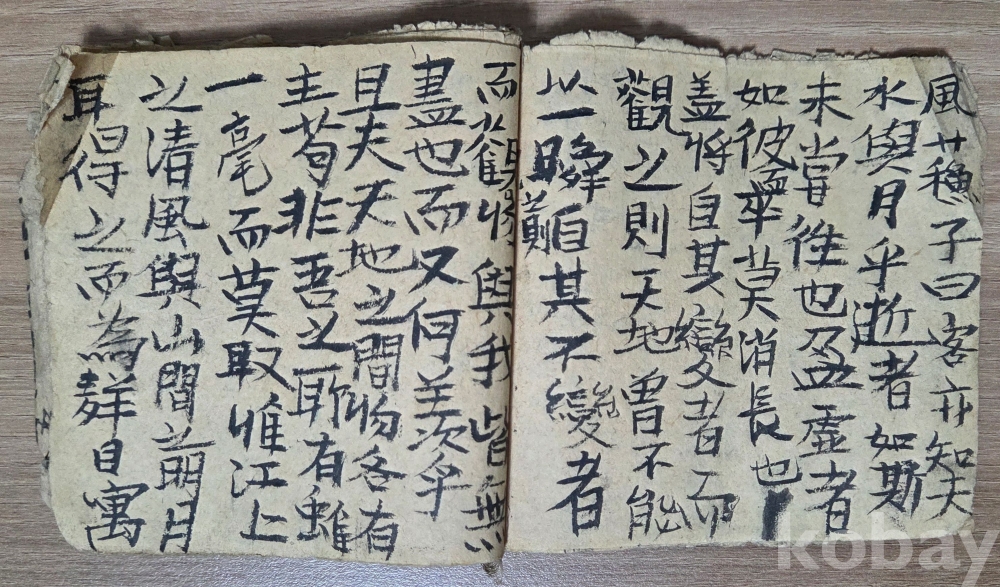 風蘓子曰客亦知夫
水與月乎逝者如斯
未嘗徃也盈虛者
如彼而卒莫消長也
盖將自其變者而
觀之則天地曾不能
以一瞬自其不變者
而觀與我皆無
盡也而又何羡乎
且夫天地之間物各有
主苟非吾之所有雖
一毫而莫取惟江上
之清風與山間之明月
耳得之而為聲目寓
kobay